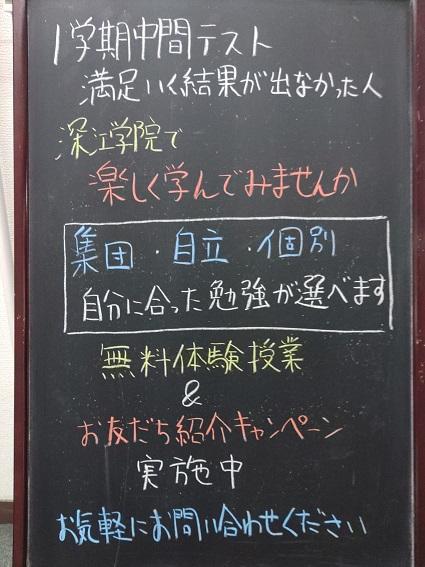 1学期中間テスト
満足いく結果が出なかった人
深江学院で
楽しく学んでみませんか
集団・自立・個別
自分に合った勉強が選べます
無料体験授業
&
お友だち紹介キャンペーン
実施中
お気軽にお問い合わせください